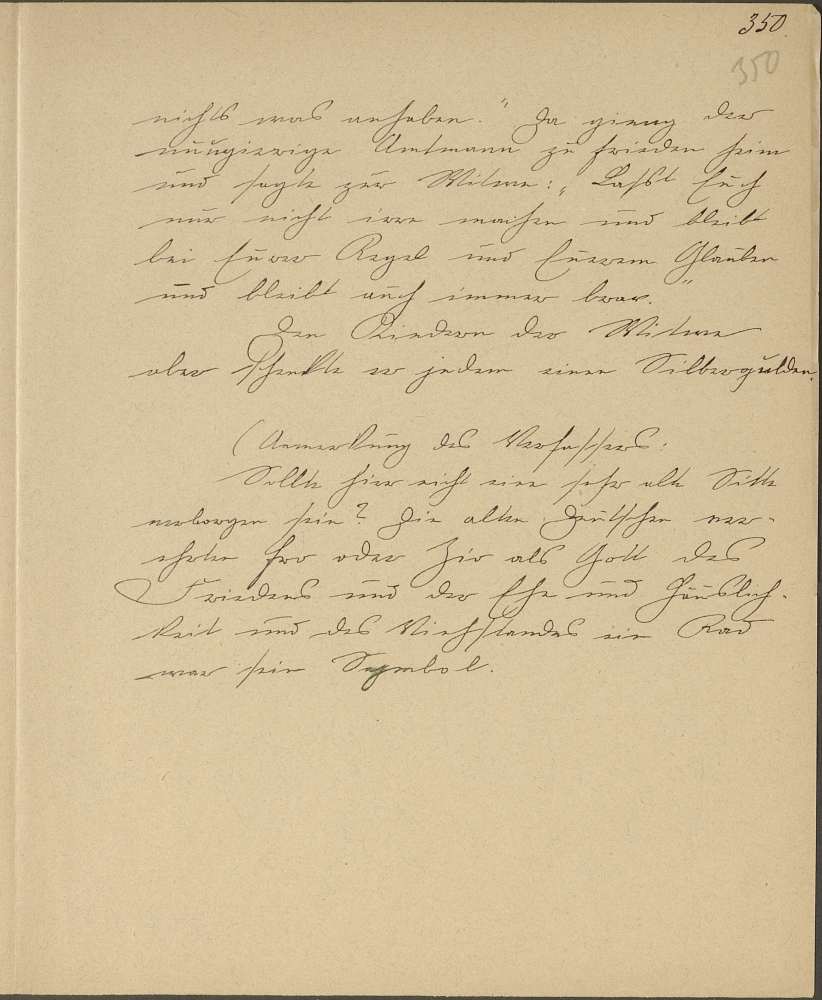 350.
350
nichts was anhaben." Da gieng der
neugierige Amtmann zu frieden heim
und sagte zur Witwe: „Lasst Euch
nur nicht irre machen und bleibt
bei Eurer Regel und Euerem Glauben
und bleibt auch immer brav."
Den Kindern der Witwe
aber schenkte er jedem einen Silbergulden.
(Anmerkung des Verfassers:
Sollte hier nicht eine sehr alte Sitte
verborgen sein? Die alten Deutschen ver-
ehrten Fro oder Zio als Gott des
Friedens und der Ehe und Häuslich-
keit und des Viehstandes ein Rad
war sein Symbol.